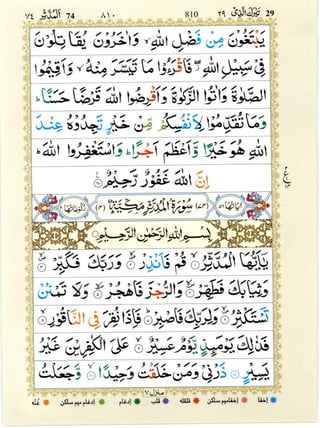 ٧٤ اَلْمُدَّثِّر 74 ٨١٠ 810 ٢٩ تَبٰرَكَ الَّذِیْ 29
يَبْتَغُوْنَ مِنْ فَضْلِ اللّٰهِ ۙ وَاٰخَرُوْنَ يُقَاتِلُوْنَ
فِىْ سَبِيْلِ اللّٰهِ ۖ فَاقْرَءُوْا مَا تَيَسَّرَ مِنْهُ ۙ وَاَقِيْمُوا
الصَّلٰوةَ وَاٰتُوا الزَّكٰوةَ وَاَقْرِضُوا اللّٰهَ قَرْضًا حَسَنًا ؕ
وَمَا تُقَدِّمُوْا لِاَنْفُسِكُمْ مِّنْ خَيْرٍ تَجِدُوْهُ عِنْدَ
اللّٰهِ هُوَ خَيْرًا وَّاَعْظَمَ اَجْرًا ؕ وَاسْتَغْفِرُوا اللّٰهَ ؕ
اِنَّ اللّٰهَ غَفُوْرٌ رَّحِيْمٌ
سُوْرَةُ الْمُدَّثِّرِ مَكِّيَّةٌ
بِسْمِ اللّٰهِ الرَّحْمٰنِ الرَّحِيْمِ
يٰۤاَيُّهَا الْمُدَّثِّرُ ۙ قُمْ فَاَنْذِرْ ۙ وَرَبَّكَ فَكَبِّرْ ۙ
وَثِيَابَكَ فَطَهِّرْ ۙ وَالرُّجْزَ فَاهْجُرْ ۙ وَلَا تَمْنُنْ
تَسْتَكْثِرُ ۙ وَلِرَبِّكَ فَاصْبِرْ ؕ فَاِذَا نُقِرَ فِى النَّاقُوْرِ ۙ
فَذٰلِكَ يَوْمَئِذٍ يَّوْمٌ عَسِيْرٌ ۙ عَلَى الْكٰفِرِيْنَ غَيْرُ
يَسِيْرٍ ذَرْنِىْ وَمَنْ خَلَقْتُ وَحِيْدًا ۙ وَّجَعَلْتُ
منزل ٧
اخفا اخفا میم ساکن قلقله قلب ادغام ادغام میم ساکن غنّه